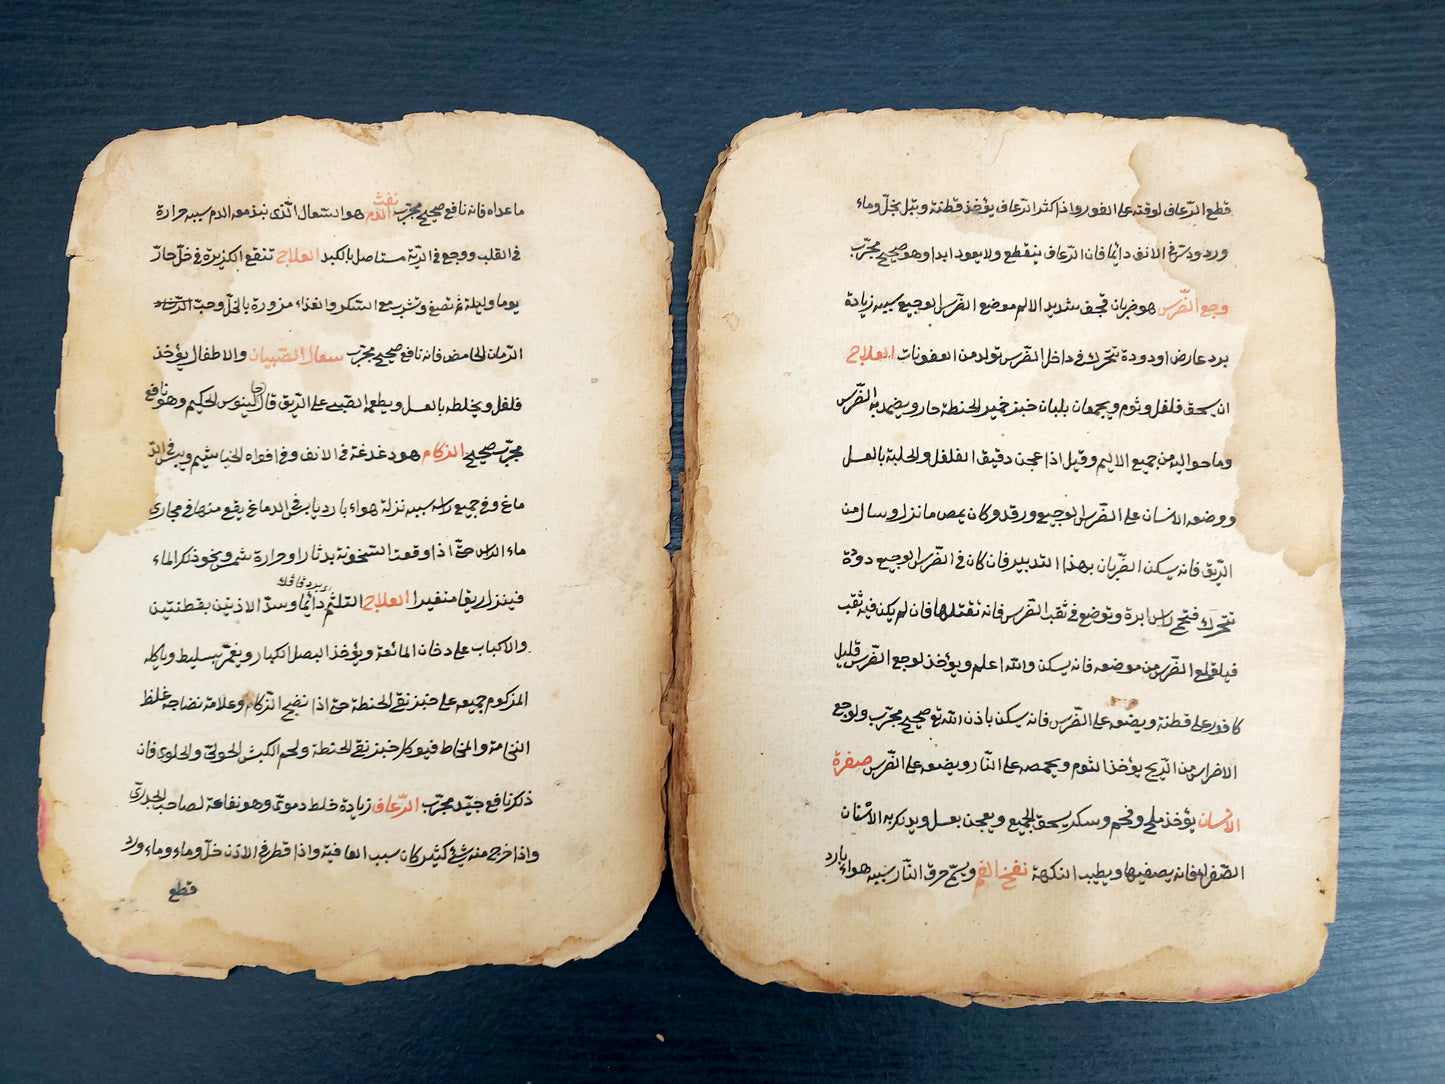 ما عداه فانه نافع صحيح مجرّب نفث الدم هو السّعال الّذى ينبذ معه الدم سببه حرارة
فى القلب ووجع فى الريّة مستاصل بالكبد العلاج تنقع الكزبرة فى خلّ حارّ
يوما وليلة ثم تصفى وتشرب مع السّكر والغذاء مزورة بالخلّ وحبّ الرّشاد
الرّمان الحامض فانه نافع صحيح مجرّب سعال الصّبيان والاطفال يؤخذ
فلفل ويخلطه بالعسل ويطعمه الصّبى على الرّيق قال جالينوس الحكيم وهو نافع
مجرّب صحيح الزكام هو دغدغة فى الانف وفى افواه الخياشيم ويبس فى الدّ
ماغ وفى جميع راسه سببه نزلة هواء بارد يابس فى الدماغ يقع منها فى مجارى
ماء الراس حتّى اذا وقعت السّخونة بدثار او حرارة شمس ونحو ذلك الماء
فينزل ريقا منفيرا العلاج التلثّم دائما وسدّ الاذنين بقطنتين
والاكباب على دخان المائعة ويؤخذ البصل الكبار ويغمّر بسليط وياكله
المزكوم جميعه على خبز نقى الحنطة حتى اذا نضج الزّكام وعلامة نضاجه غلظ
النخامة والمخاط فيوكل خبز نقى الحنطة ولحم الكبش الحولىّ والحلوى فان
ذلك نافع جيّد مجرّب الرّعاف زيادة خلط دموىّ وهو نفاعة لصاحب الجدرىّ
واذا خرج منه شئ كثير كان سبب العافية واذا قطر فى الاذن خلّ وماء وماء ورد
قطع
قطع الرّعاف لوقته على الفور واذا كثر الرّعاف يؤخذ قطنة وتبل بخلّ وماء
ورد ودسّ فى الانف دائما فان الرّعاف ينقطع ولا يعود ابدا وهو صحيح مجرّب
وجع الضّرس هو ضربان مجحف شديد الالم موضع الضّرس الوجيع سببه زيادة
برد عارض او دودة تتحرّك فى داخل الضّرس تولد من العفونات العلاج
ان يسحق فلفل وثوم ويجمعان بلبان خبز خمير الحنطة حار ويضمد به الضّرس
وما حواليه من جميع الاليم وقيل اذا عجن دقيق الفلفل والحلبة بالعسل
ووضعه الانسان على الضّرس الوجيع ورقد وكان يمص ما نزل وسال من
الرّيق فانه يسكن الضّربان بهذا التدبير فان كان فى الضّرس الوجيع دودة
تتحرّك فتحمى راس ابرة وتوضع فى ثقب الضّرس فانه تقتلها فان لم يكن فيه ثقب
فيا قلع الضّرس من موضعه فانه يسكن والله اعلم ويؤخذ لوجع الضّرس قليل
كافور على قطنة ويضعه على الضّرس فانه يسكن باذن الله تع صحيح مجرّب ولوجع
الاضراس من الرّيح يؤخذ الثوم ويحمصه على النّار ويضعه على الضّرس صفرة
الأسنان يؤخذ ملح وفحم وسكر يسحق الجميع ويعجن بعسل ويدلك به الأسنان
الصّفر فانه يصفيها ويطيب النكهة نفخ الفم ويسمّى حرق النّار سببه هواء بارد